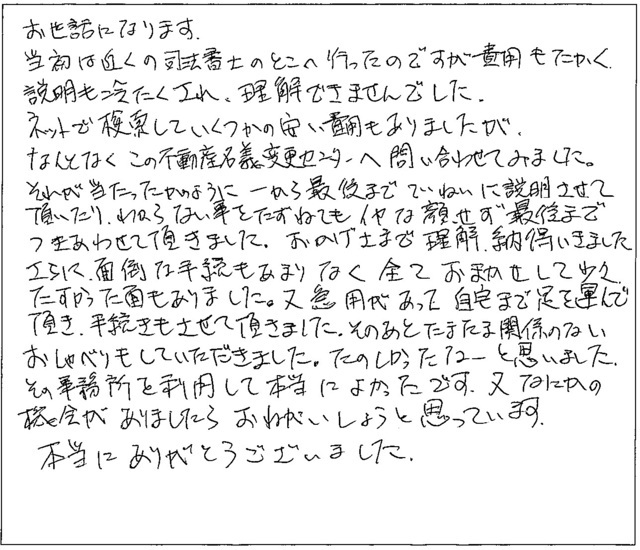 お世話になります.
当初は近くの司法書士のとこへ行ったのですが費用もたかく
説明も冷たくされ、理解できませんでした.
ネットで検索していくつかの安い費用もありましたが.
なんとなくこの不動産名義変更センターへ問い合わせてみました。
それが当たったかのように一から最後までていねいに説明させて
頂いたり、わからない事をたずねてもイヤな顔せず最後まで
つきあわせて頂きました. おかげさまで理解.納得いきました
さらに、面倒な手続もあまりなく全ておまかせして少々
たすかった面もありました。又急用があって自宅まで足を運んで
頂き、手続きもさせて頂きました.そのあとたまたま関係のない
おしゃべりもしていただきました。たのしかったなーと思いました.
その事務所を利用して本当によかったです.又なにかの
機会がありましたらおねがいしようと思っています.
本当にありがとうございました.